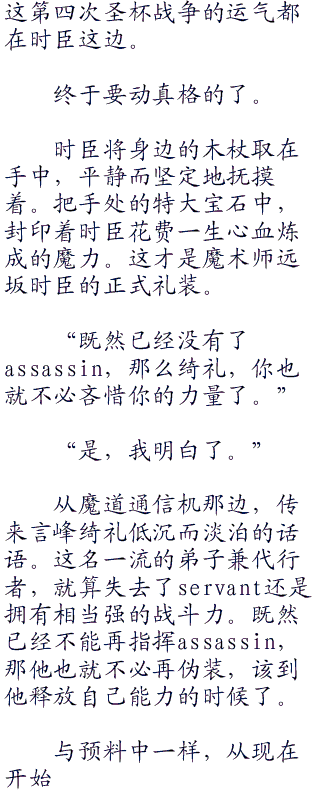 这第四次圣杯战争的运气都
在时臣这边。
终于要动真格的了。
时臣将身边的木杖取在
手中，平静而坚定地抚摸
着。把手处的特大宝石中，
封印着时臣花费一生心血炼
成的魔力。这才是魔术师远
坂时臣的正式礼装。
“既然已经没有了
assassin，那么绮礼，你也
就不必吝惜你的力量了。”
“是，我明白了。”
从魔道通信机那边，传
来言峰绮礼低沉而淡泊的话
语。这名一流的弟子兼代行
者，就算失去了servant还是
拥有相当强的战斗力。既然
已经不能再指挥assassin，
那他也就不必再伪装，该到
他释放自己能力的时候了。
与预料中一样，从现在
开始